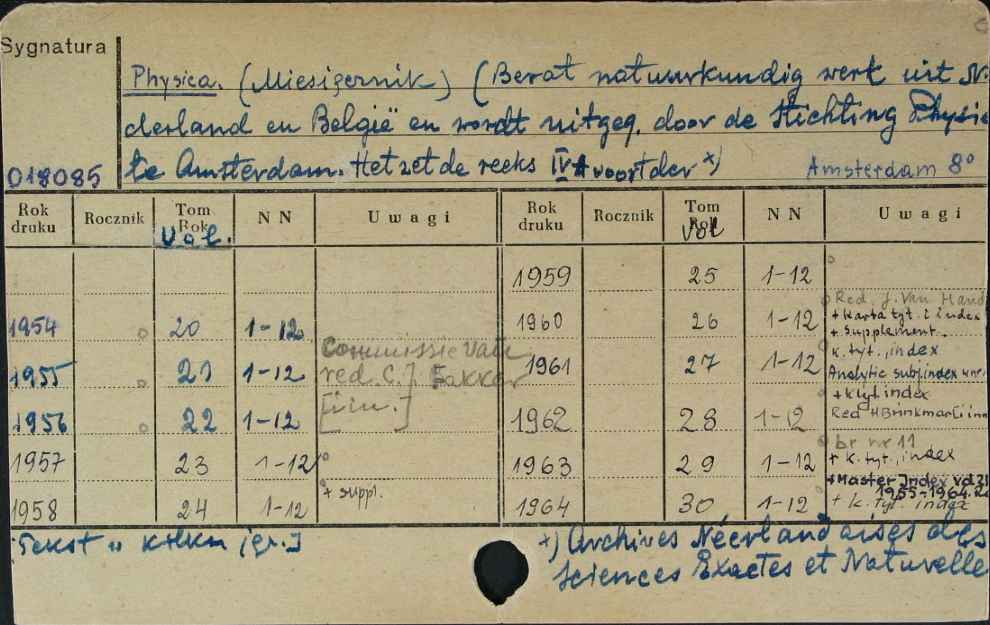 Sygnatura
Physica. (Miesięcznik) (Bevat natuurkundig werk uit Ne-
derland en België en wordt uitgeg. door de Stichting Physica
te Amsterdam. Het zet de reeks IV A voort der x)
018085
Amsterdam 8°
Rok druku Rocznik Tom Rok Vol. NN Uwagi Rok druku Rocznik Tom Rok Vol NN Uwagi
1959 25 1-12
1954 20 1-12
1960 26 1-12 Red. J. Van
+ karta tyt. i index
+ supplement.
1955 21 1-12 Commissie van
red. C. J. Fakker
[i in.]
1961 27 1-12 k. tyt., index
Analytic subj. index
1956 22 1-12
1962 28 1-12 + k. tyt. index
Red H Brinkman i inn
1957 23 1-12
1963 29 1-12 br nr 11
+ k. tyt., index
1958 24 1-12 + suppl.
1964 30 1-12 + Master Index
1955-1964.
+ k. tyt. index
Tekst w
x) Archives Néerlandaises des
Sciences Exactes et Naturelle